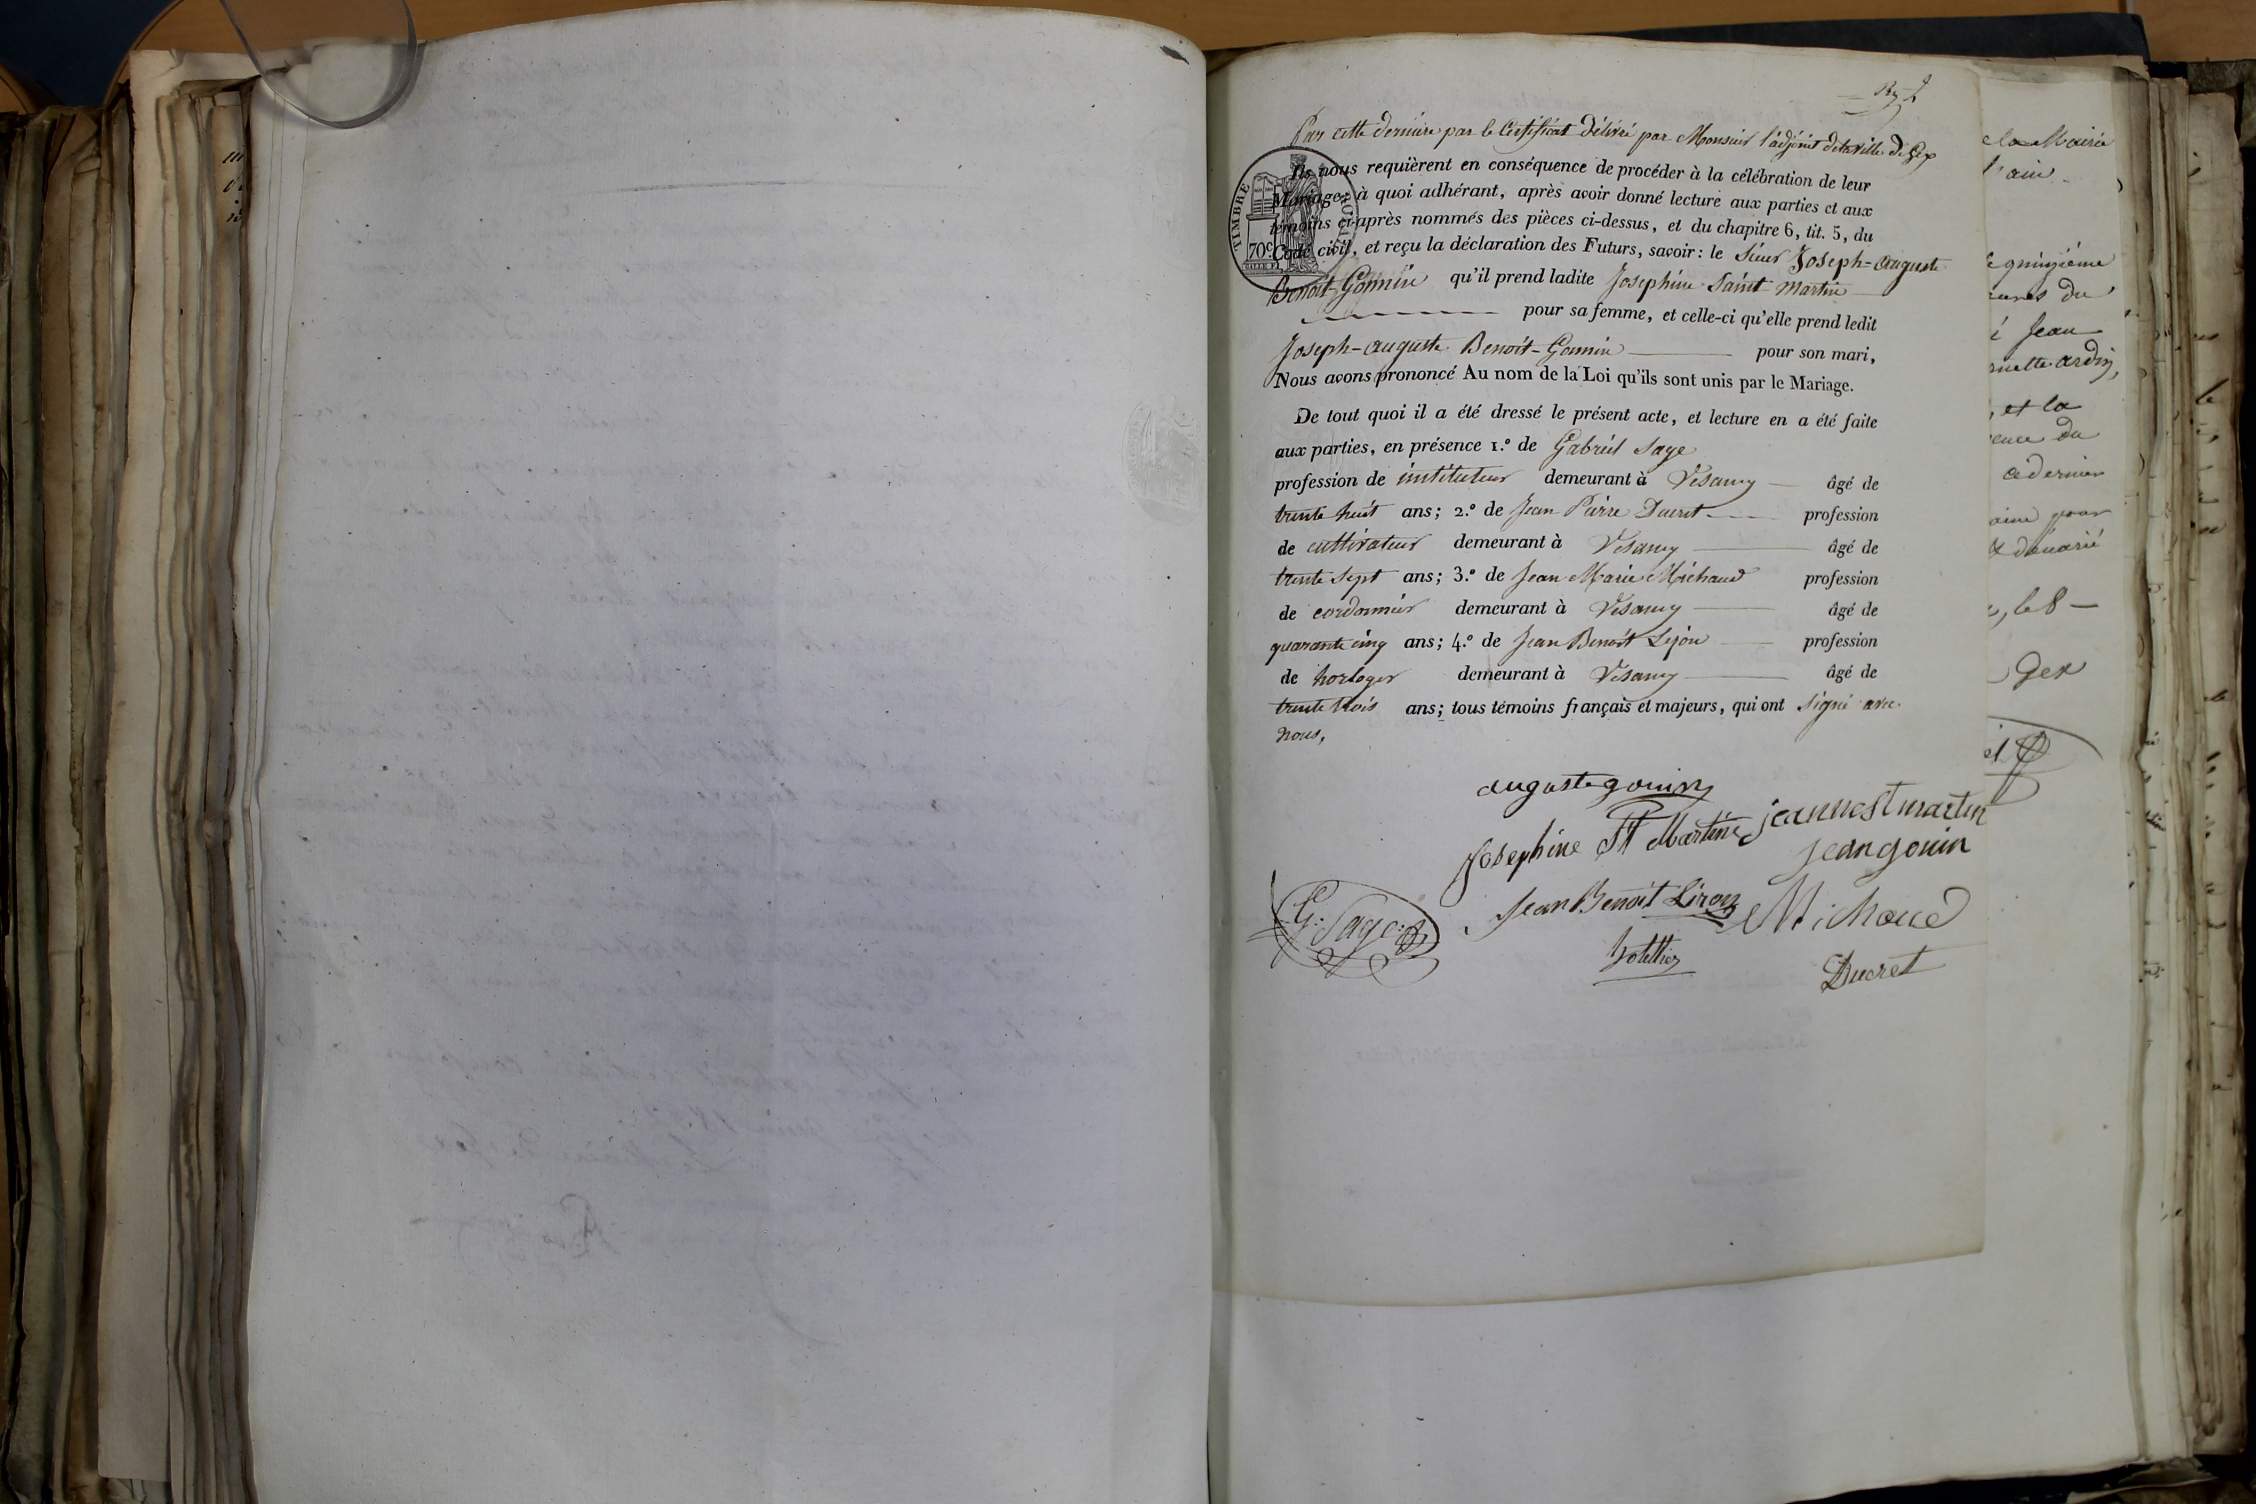 Par cette dernière par le Certificat délivré par Monsieur l'adjoint de la ville de Gex
Ils nous requièrent en conséquence de procéder à la célébration de leur
Mariage; à quoi adhérant, après avoir donné lecture aux parties et aux
témoins ci-après nommés des pièces ci-dessus, et du chapitre 6, tit. 5, du
Code civil, et reçu la déclaration des Futurs, savoir: le sieur Joseph-auguste
Benoit-Gonnin qu'il prend ladite Josephine Saint martin
pour sa femme, et celle-ci qu'elle prend ledit
Joseph-auguste Benoit-Gonnin pour son mari,
Nous avons prononcé Au nom de la Loi qu'ils sont unis par le Mariage.
De tout quoi il a été dressé le présent acte, et lecture en a été faite
aux parties, en présence 1.° de Gabriel Sage
profession de instituteur demeurant à Vesancy âgé de
trente huit ans; 2.° de Jean Pierre Ducret profession
de cultivateur demeurant à Vesancy âgé de
trente sept ans; 3.° de Jean Marie Michaud profession
de cordonnier demeurant à Vesancy âgé de
quarante cinq ans; 4.° de Jean Benoit profession
de horloger demeurant à Vesancy âgé de
trente trois ans; tous témoins français et majeurs, qui ont signé avec
nous,
auguste gonin
Josephine St Martin jeanne St martin
jean gonin
G: Sage
Jean Benoit Michaud
Ducret
TIMBRE ROYAL
70c
la Mairie
l'ain
quinzième
du
é Jean
ardin,
, et la
du
ce dernier
pour
, le 8
Gex